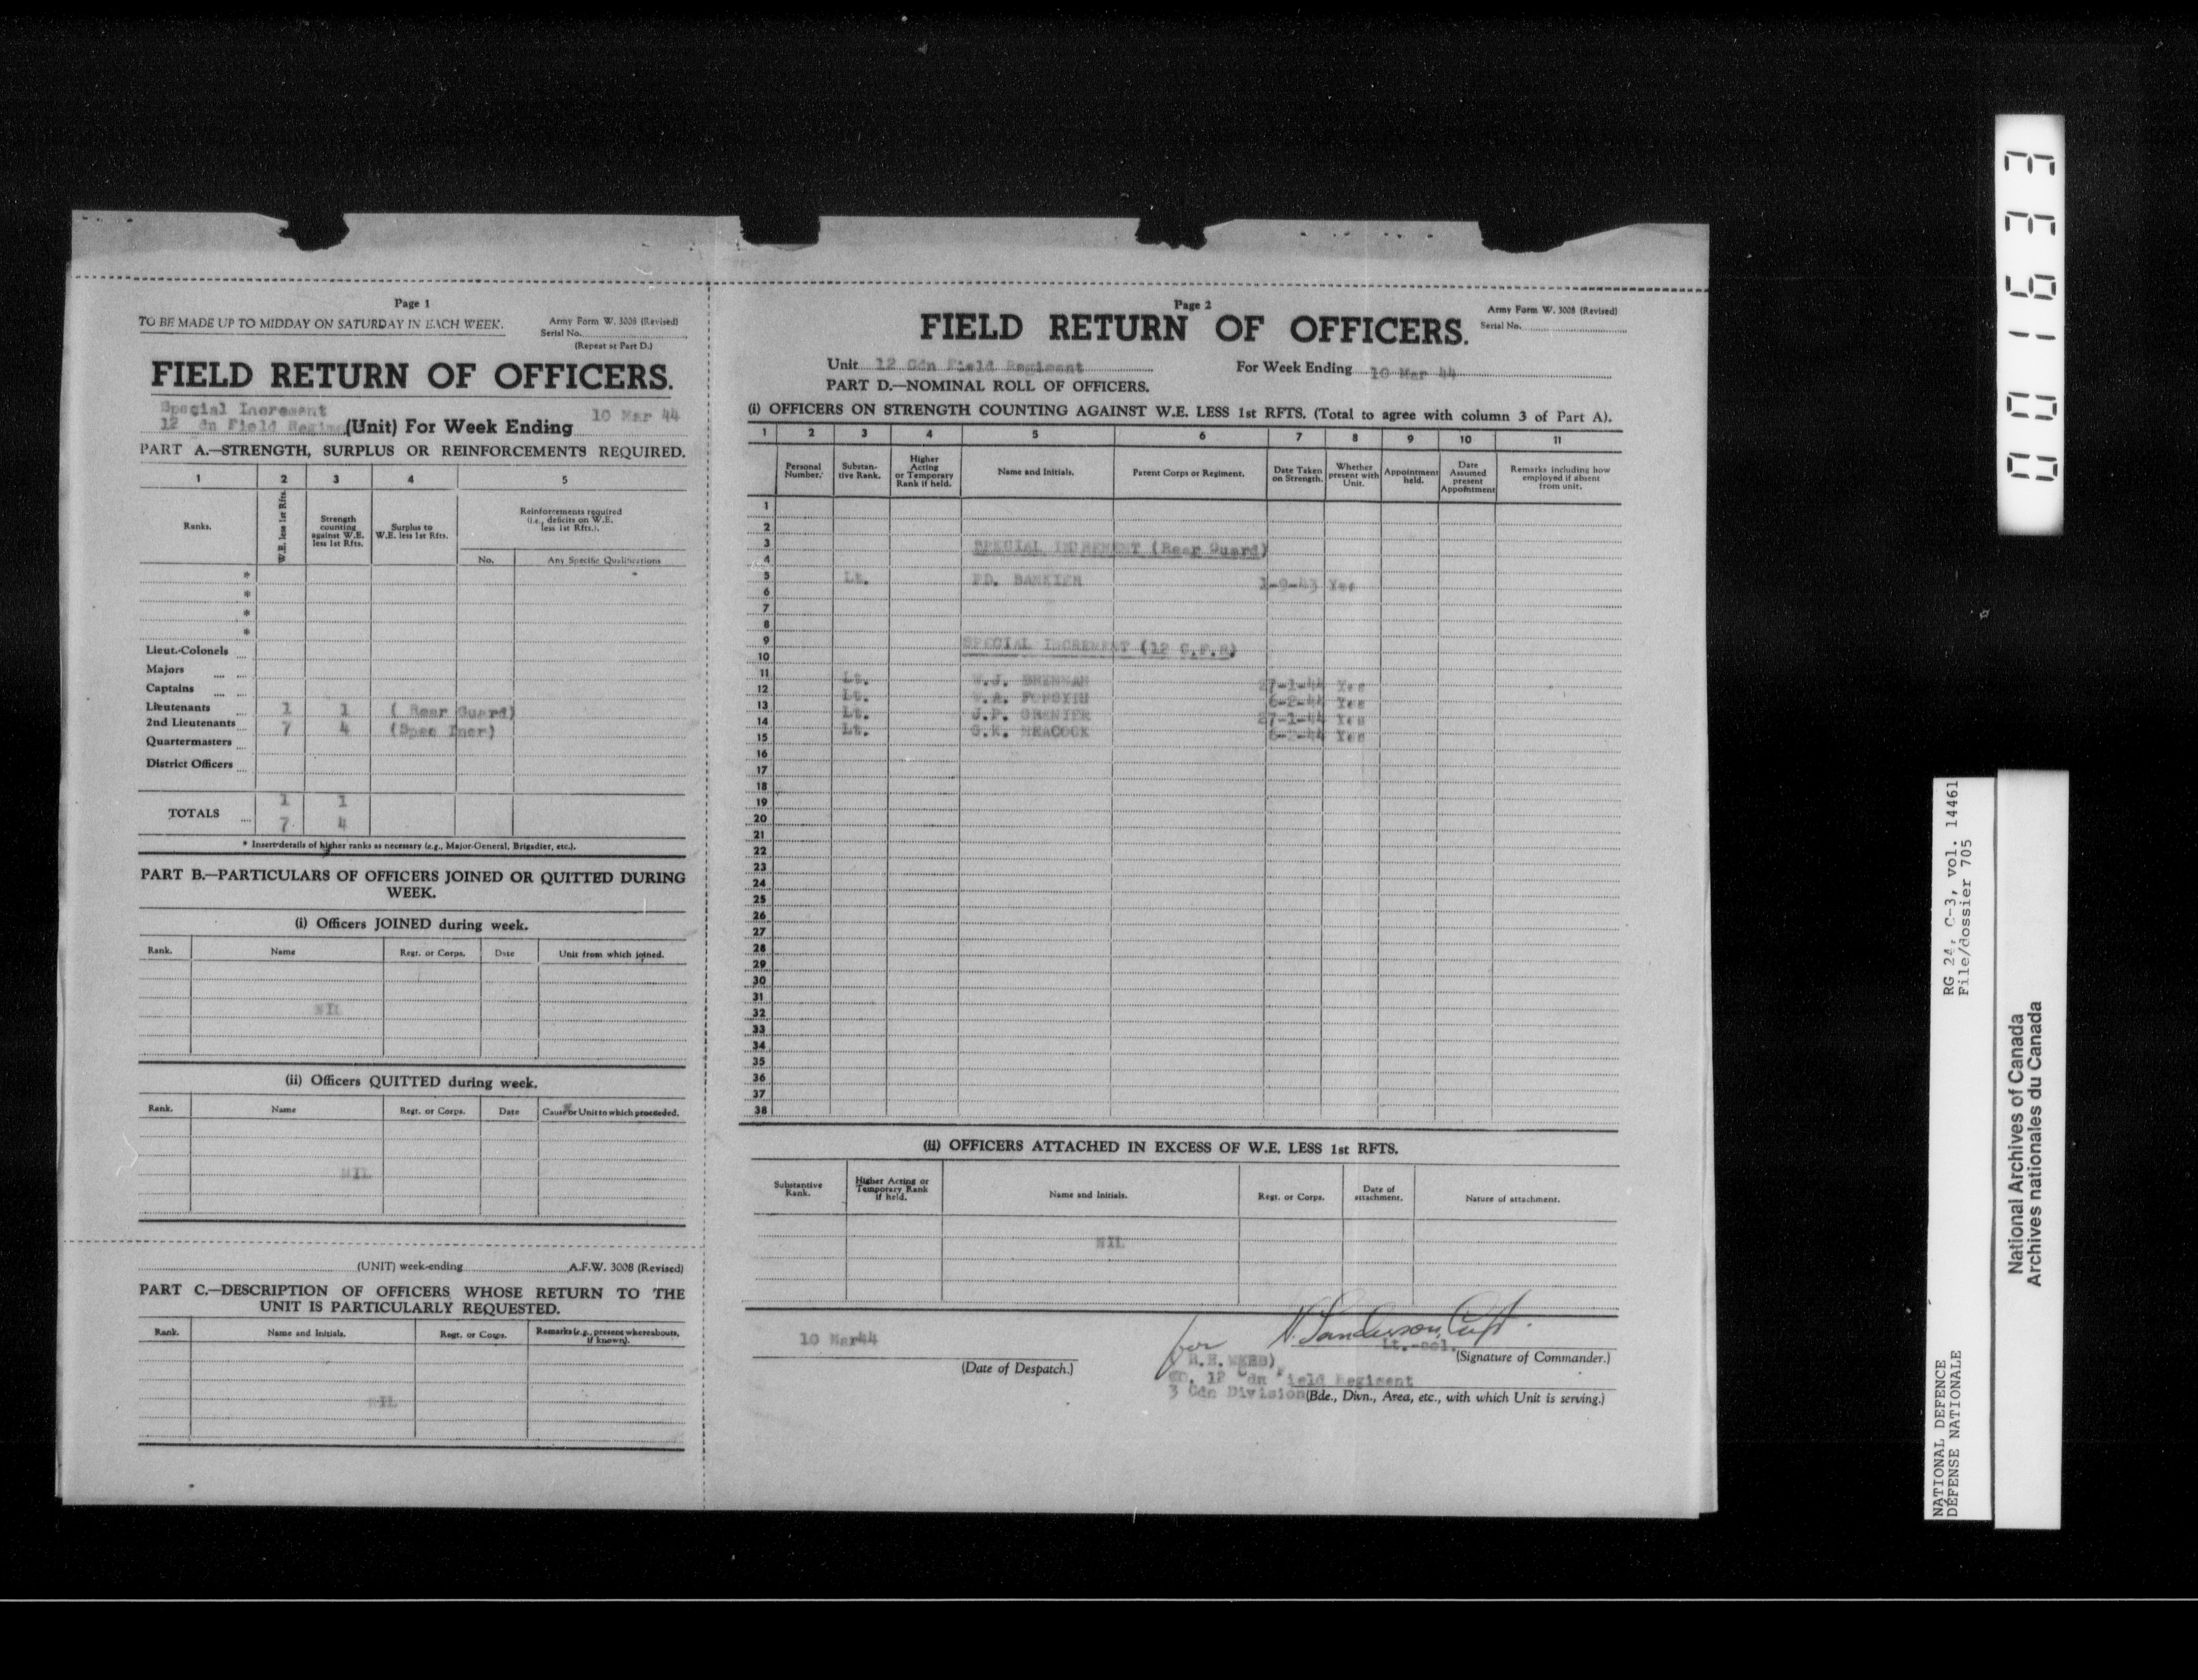 Page 1
TO BE MADE UP TO MIDDAY ON SATURDAY IN EACH WEEK.
Army Form W. 3008 (Revised)
Serial No.
(Repeat at Part D.)
FIELD RETURN OF OFFICERS.
Special Increment
12 dn Field Regime (Unit) For Week Ending 10 Mar 44
PART A.—STRENGTH, SURPLUS OR REINFORCEMENTS REQUIRED.
1 2 3 4 5
Ranks.
W.E. less 1st Rfts.
Strength counting against W.E. less 1st Rfts.
Surplus to W.E. less 1st Rfts.
Reinforcements required (i.e., deficits on W.E. less 1st Rfts.).
No. Any Specific Qualifications
*
*
*
*
Lieut.-Colonels
Majors
Captains
Lieutenants 1 1 ( Rear Guard)
2nd Lieutenants 7 4 (Spec Incr)
Quartermasters
District Officers
1 1
TOTALS
7 4
* Insert details of higher ranks as necessary (e.g., Major-General, Brigadier, etc.).
PART B.—PARTICULARS OF OFFICERS JOINED OR QUITTED DURING
WEEK.
(i) Officers JOINED during week.
Rank. Name Regt. or Corps. Date Unit from which joined.
NIL
(ii) Officers QUITTED during week.
Rank. Name Regt. or Corps. Date Cause or Unit to which proceeded.
NIL
(UNIT) week-ending A.F.W. 3008 (Revised)
PART C.—DESCRIPTION OF OFFICERS WHOSE RETURN TO THE
UNIT IS PARTICULARLY REQUESTED.
Rank. Name and Initials. Regt. or Corps. Remarks (e.g., present whereabouts, if known).
NIL
Page 2
Army Form W. 3008 (Revised)
Serial No.
FIELD RETURN OF OFFICERS.
Unit 12 Cdn Field Regiment For Week Ending 10 Mar 44
PART D.—NOMINAL ROLL OF OFFICERS.
(i) OFFICERS ON STRENGTH COUNTING AGAINST W.E. LESS 1st RFTS. (Total to agree with column 3 of Part A).
1 2 3 4 5 6 7 8 9 10 11
Personal Number.
Substantive Rank.
Higher Acting or Temporary Rank if held.
Name and Initials.
Parent Corps or Regiment.
Date Taken on Strength.
Whether present with Unit.
Appointment held.
Date Assumed present Appointment
Remarks including how employed if absent from unit.
1
2
3 SPECIAL INCREMENT (Rear Guard)
4
5 Lt. BANKIER 1-9-43 Yes
6
7
8
9 SPECIAL INCREMENT (12 C.F.R)
10
11 Lt. W.J. BRENNAN 27-1-44 Yes
12 Lt. FORSYTH 6-2-44 Yes
13 Lt. J.P. GRENIER 27-1-44 Yes
14 Lt. 6-2-44 Yes
15
16
17
18
19
20
21
22
23
24
25
26
27
28
29
30
31
32
33
34
35
36
37
38
(ii) OFFICERS ATTACHED IN EXCESS OF W.E. LESS 1st RFTS.
Substantive Rank.
Higher Acting or Temporary Rank if held.
Name and Initials.
Regt. or Corps.
Date of attachment.
Nature of attachment.
NIL
10 Mar44
(Date of Despatch.)
for Sanderson, Capt.
Lt.-Col.
(Signature of Commander.)
R.H. WEBB)
12 Cdn Field Regiment
3 Cdn Division (Bde., Divn., Area, etc., with which Unit is serving.)
0001633
RG 24, C-3, vol. 14461
File/dossier 705
NATIONAL DEFENCE
DÉFENSE NATIONALE
National Archives of Canada
Archives nationales du Canada